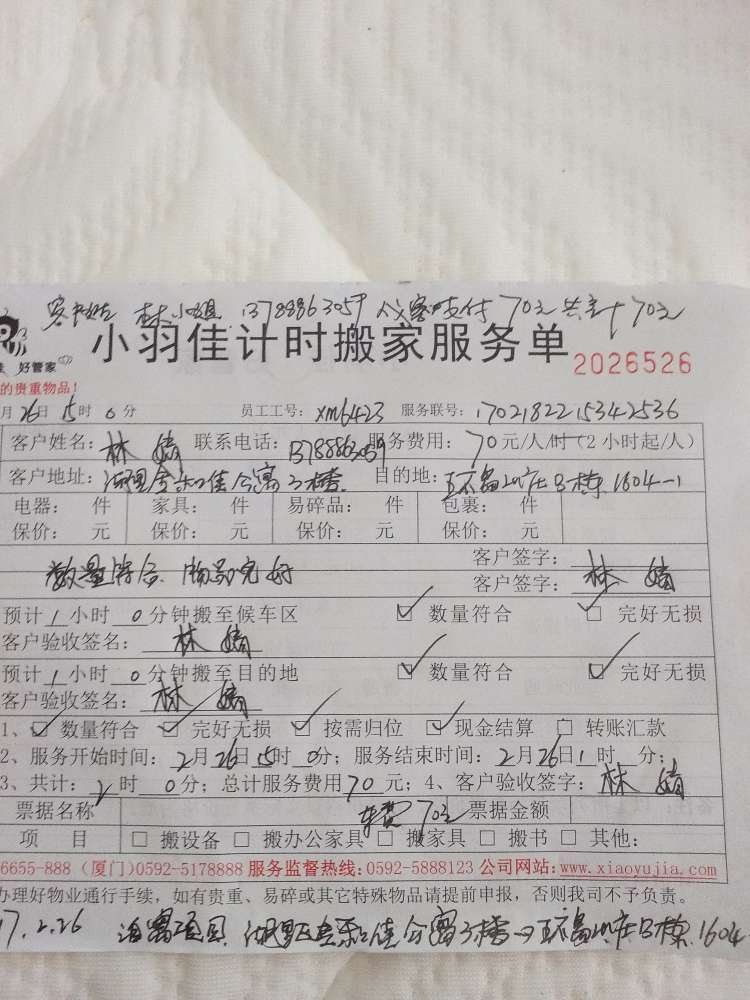 林小姐 13788863059 客支付 70元 共计 70元
好管家
小羽佳计时搬家服务单 2026526
的贵重物品！
月26日15时0分 员工工号：xm6423 服务联号：1702182215342536
客户姓名：林婧 联系电话：13788863059 服务费用：70元/人/时（2小时起/人）
客户地址：湖里 佳公寓3楼 目的地： 山庄B栋1604-1
电器： 件 家具： 件 易碎品： 件 包裹： 件
保价： 元 保价： 元 保价： 元 保价： 元
客户签字：
数量符合 物品完好 客户签字：林婧
预计1小时0分钟搬至候车区 ☑ 数量符合 ☑ 完好无损
客户验收签名：林婧
预计1小时0分钟搬至目的地 ☑ 数量符合 ☑ 完好无损
客户验收签名：林婧
1、☑ 数量符合 ☑ 完好无损 ☑ 按需归位 ☑ 现金结算 □ 转账汇款
2、服务开始时间：2月26日15时0分；服务结束时间：2月26日1时 分；
3、共计：2时0分；总计服务费用70元；4、客户验收签字：林婧
票据名称 车费70元 票据金额
项 目 □ 搬设备 □ 搬办公家具 □ 搬家具 □ 搬书 □ 其他：
6655-888（厦门）0592-5178888 服务监督热线：0592-5888123 公司网站：www.xiaoyujia.com
办理好物业通行手续，如有贵重、易碎或其它特殊物品请提前申报，否则我司不予负责。
17.2.26 佳公寓3楼→ 山庄B栋.1604-